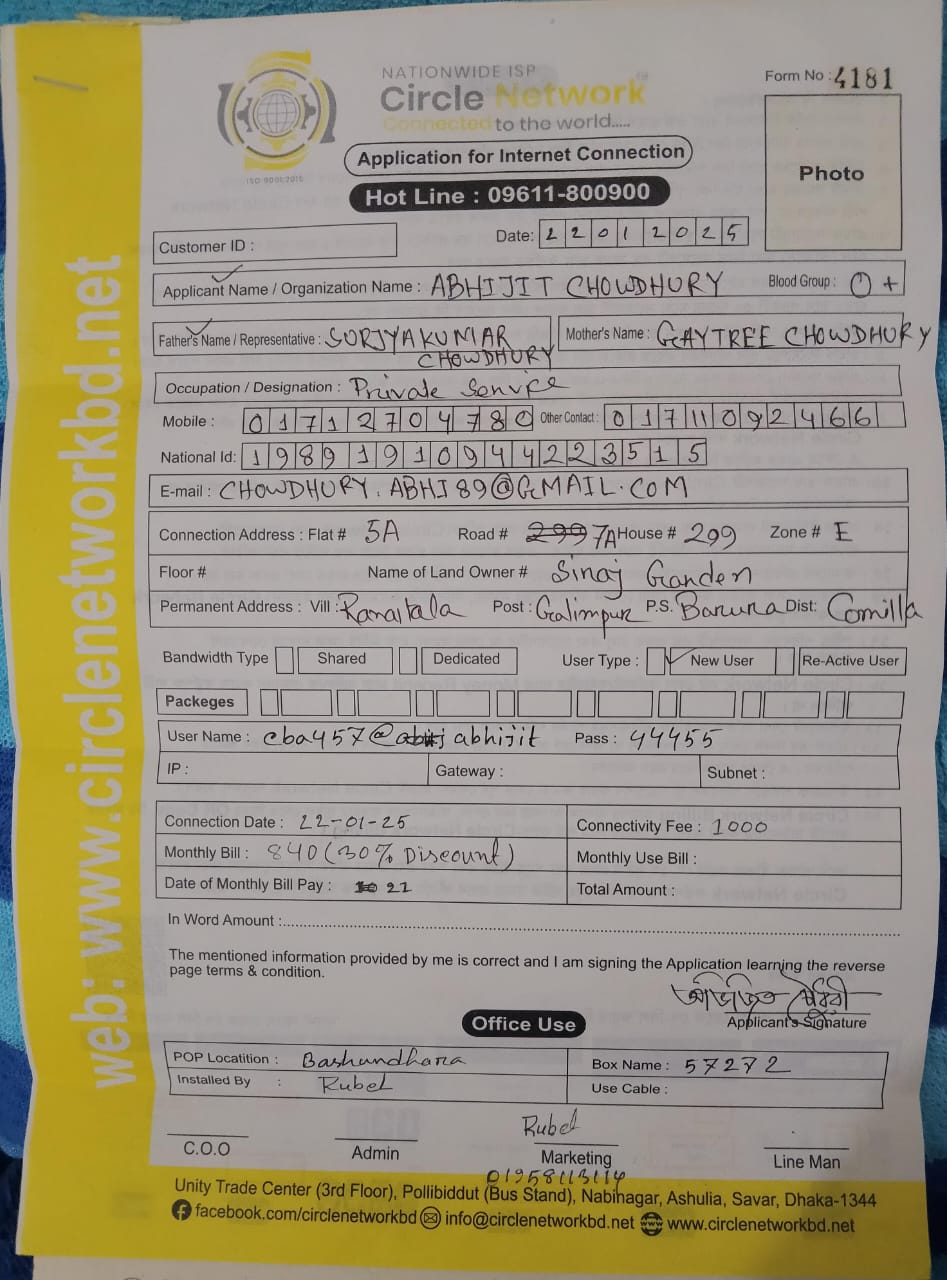 NATIONWIDE ISP
Circle Network
Connected to the world.....
ISO 9001:2015
Form No : 4181
Application for Internet Connection
Hot Line : 09611-800900
Photo
Customer ID :
Date: 22012025
Applicant Name / Organization Name : ABHIJIT CHOWDHURY Blood Group : O+
Father's Name / Representative : SURJYA KUMAR CHOWDHURY Mother's Name : GAYTREE CHOWDHURY
Occupation / Designation : Private Service
Mobile : 01712704780 Other Contact : 01711092466
National Id: 19891910944223515
E-mail : CHOWDHURY.ABHI89@GMAIL.COM
Connection Address : Flat # 5A Road # 7A House # 299 Zone # E
Floor # Name of Land Owner # Siraj Garden
Permanent Address : Vill : Post : Galimpur P.S. Barura Dist: Comilla
Bandwidth Type Shared Dedicated User Type : New User Re-Active User
Packeges
User Name : cba457@ abhijit Pass : 44455
IP : Gateway : Subnet :
Connection Date : 22-01-25 Connectivity Fee : 1000
Monthly Bill : 840 (30% Discount) Monthly Use Bill :
Date of Monthly Bill Pay : 22 Total Amount :
In Word Amount :
The mentioned information provided by me is correct and I am signing the Application learning the reverse
page terms & condition.
অভিজিত চৌধুরী
Applicant's Signature
Office Use
POP Locatition : Bashundhara Box Name : 57272
Installed By : Rubel Use Cable :
Rubel
C.O.O Admin Marketing Line Man
01958113114
Unity Trade Center (3rd Floor), Pollibiddut (Bus Stand), Nabinagar, Ashulia, Savar, Dhaka-1344
facebook.com/circlenetworkbd info@circlenetworkbd.net www.circlenetworkbd.net
web: www.circlenetworkbd.net